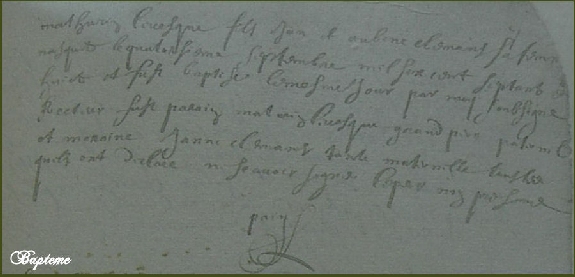 mathurin livesque fils Jan et aubine clemant sa femme
nasquit le quatorsiesme septembre mil six cent septante
huict et fust baptisé le mesme jour par moy soubsigné
Recteur fust parain maturin livesque grand pere paternel
et maraine Janne clemant tante maternelle lesquels
quils ont declaré ne scavoir signer
Bapteme